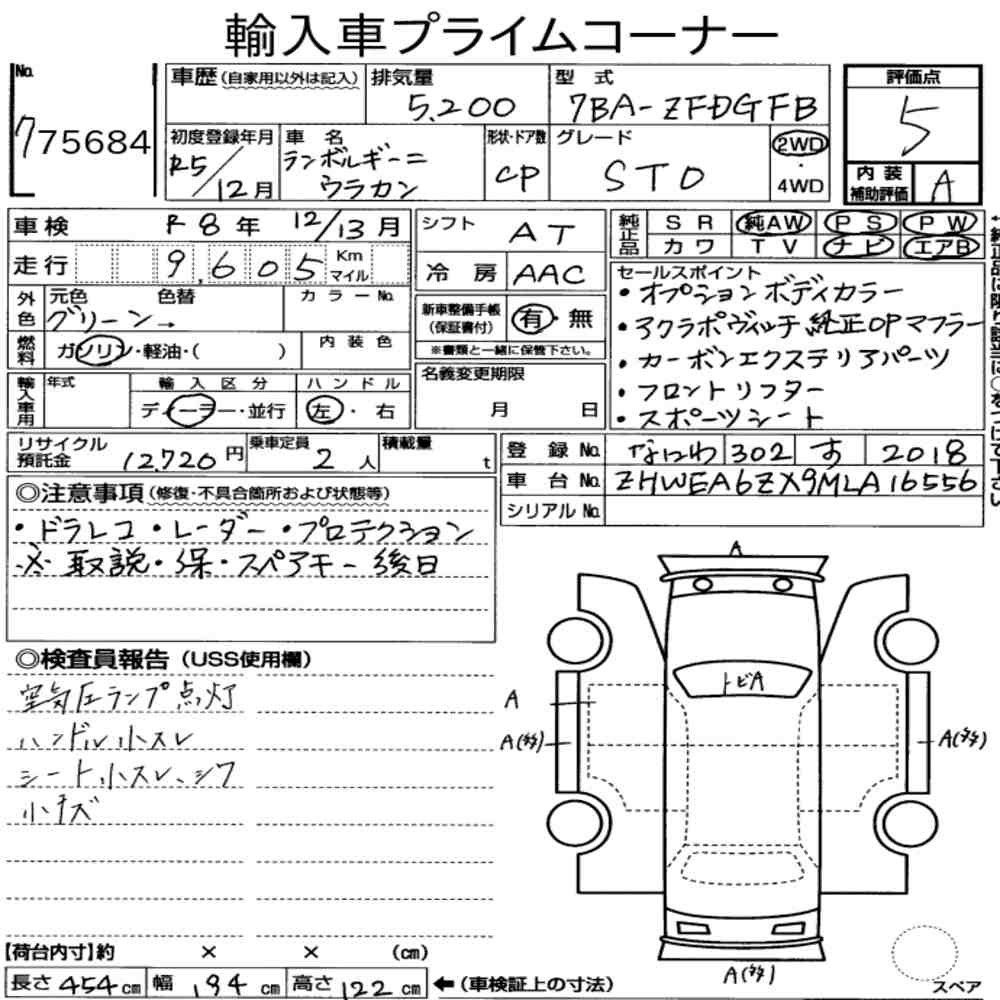 輸入車プライムコーナー
No. 775684
車歴(自家用以外は記入) 排気量 5,200 型式 7BA-ZFDGFB
評価点 5
初度登録年月 R5/12月 車名 ランボルギーニ ウラカン 形状・ドア数 CP グレード STO 2WD・4WD
内装補助評価 A
車検 R8年 12/13月
走行 9,605 Km マイル
外色 元色 グリーン→ 色替 カラーNo.
燃料 ガソリン・軽油・( ) 内装色
輸入車用 年式 輸入区分 ディーラー・並行 ハンドル 左・右
シフト AT
冷房 AAC
新車整備手帳(保証書付) 有・無
※書類と一緒に保管下さい。
名義変更期限 月 日
純正品 SR 純AW PS PW
カワ TV ナビ エアB
セールスポイント
・オプションボディカラー
・アクラポヴィッチ純正OPマフラー
・カーボンエクステリアパーツ
・フロントリフター
・スポーツシート
リサイクル預託金 12,720円 乗車定員 2人 積載量 t
登録No. なにわ 302 す 2018
車台No. ZHWEA6ZX9MLA16556
シリアルNo.
◎注意事項(修復・不具合箇所および状態等)
・ドラレコ・レーダー・プロテクション
※取説・保・スペアキー 後日
◎検査員報告(USS使用欄)
空気圧ランプ点灯
ハンドル小スレ
シート小スレ、シワ
小キズ
A
トビA
A
A(タタ)
A(タタ)
A(タタ)
【荷台内寸】約 × × (cm)
長さ 454cm 幅 194cm 高さ 122cm ←(車検証上の寸法)
スペア